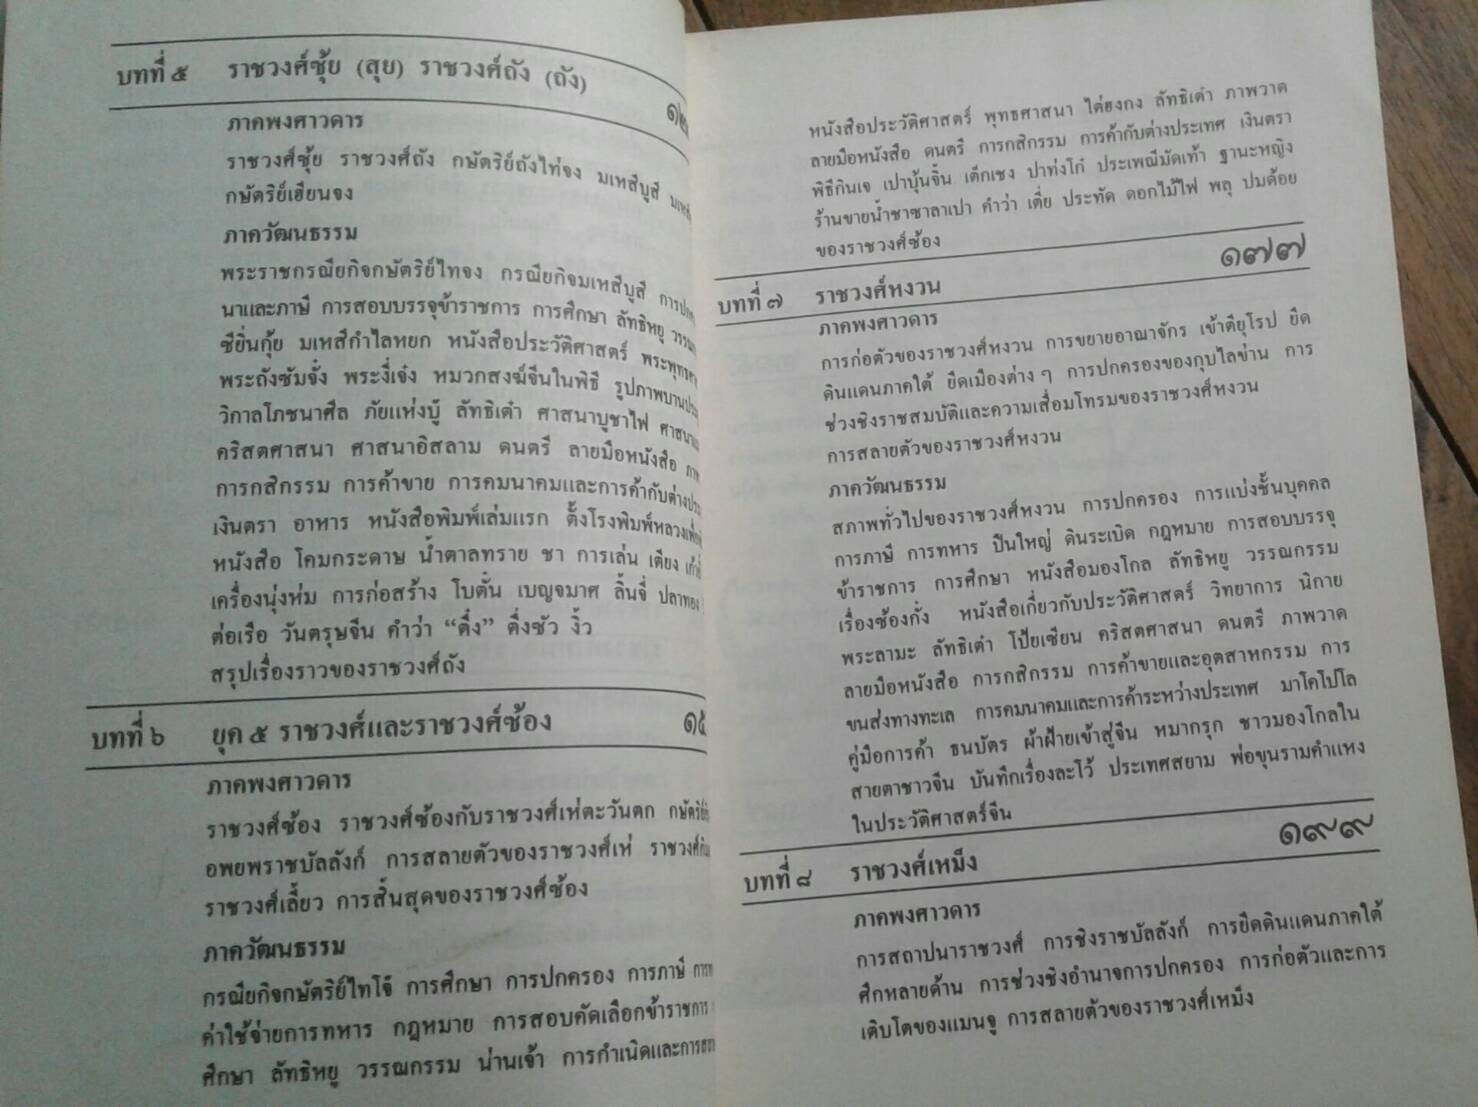 บทที่ ๕ ราชวงศ์ซุ้ย (สุย) ราชวงศ์ถัง (ถัง)
ภาคพงศาวดาร
ราชวงศ์ซุ้ย ราชวงศ์ถัง กษัตริย์ถังไท่จง มเหสีบูสี
กษัตริย์เฮียนจง
ภาควัฒนธรรม
พระราชกรณียกิจกษัตริย์ไทจง กรณียกิจมเหสีบูสี
นาและภาษี การสอบบรรจุข้าราชการ การศึกษา ลัทธิหยู
ซียิ่นกุ้ย มเหสีกำไลหยก หนังสือประวัติศาสตร์
พระถังซัมจั๋ง พระงี่เจ๋ง หมวกสงฆ์จีนในพิธี
วิกาลโภชนาศีล ภัยแห่งบู๊ ลัทธิเต๋า ศาสนาบูชาไฟ
คริสตศาสนา ศาสนาอิสลาม ดนตรี ลายมือหนังสือ
การกสิกรรม การค้าขาย การคมนาคมและการค้ากับ
เงินตรา อาหาร หนังสือพิมพ์เล่มแรก ตั้งโรงพิมพ์หลวง
หนังสือ โคมกระดาษ น้ำตาลทราย ชา การเล่น เตียง
เครื่องนุ่งห่ม การก่อสร้าง โบตั๋น เบญจมาศ ลิ้นจี่ ปลาทอง
ต่อเรือ วันตรุษจีน คำว่า “ตึ๋ง” ตึ่งซัว งิ้ว
สรุปเรื่องราวของราชวงศ์ถัง
บทที่ ๖ ยุค ๕ ราชวงศ์และราชวงศ์ซ้อง
ภาคพงศาวดาร
ราชวงศ์ซ้อง ราชวงศ์ซ้องกับราชวงศ์เห่ตะวันตก
อพยพราชบัลลังก์ การสลายตัวของราชวงศ์เห่
ราชวงศ์เลี้ยว การสิ้นสุดของราชวงศ์ซ้อง
ภาควัฒนธรรม
กรณียกิจกษัตริย์ไทโจ๊ การศึกษา การปกครอง การภาษี
ค่าใช้จ่ายการทหาร กฎหมาย การสอบคัดเลือกข้าราชการ
ศึกษา ลัทธิหยู วรรณกรรม น่านเจ้า การกำเนิดและการ
หนังสือประวัติศาสตร์ พุทธศาสนา ไต่ฮงกง ลัทธิเต๋า ภาพวาด
ลายมือหนังสือ ดนตรี การกสิกรรม การค้ากับต่างประเทศ เงินตรา
พิธีกินเจ เปาบุ้นจิ้น เด็กเชง ปาท่งโก๋ ประเพณีมัดเท้า ฐานะหญิง
ร้านขายน้ำชาซาลาเปา คำว่า เตี่ย ประทัด ดอกไม้ไฟ พลุ ปมด้อย
ของราชวงศ์ซ้อง
๑๗๗
บทที่ ๗ ราชวงศ์หงวน
ภาคพงศาวดาร
การก่อตัวของราชวงศ์หงวน การขยายอาณาจักร เข้าตียุโรป ยึด
ดินแดนภาคใต้ ยึดเมืองต่าง ๆ การปกครองของกุบไลข่าน การ
ช่วงชิงราชสมบัติและความเสื่อมโทรมของราชวงศ์หงวน
การสลายตัวของราชวงศ์หงวน
ภาควัฒนธรรม
สภาพทั่วไปของราชวงศ์หงวน การปกครอง การแบ่งชั้นบุคคล
การภาษี การทหาร ปืนใหญ่ ดินระเบิด กฎหมาย การสอบบรรจุ
ข้าราชการ การศึกษา หนังสือมองโกล ลัทธิหยู วรรณกรรม
เรื่องซ้องกั๋ง หนังสือเกี่ยวกับประวัติศาสตร์ วิทยาการ นิกาย
พระลามะ ลัทธิเต๋า โป๊ยเซียน คริสตศาสนา ดนตรี ภาพวาด
ลายมือหนังสือ การกสิกรรม การค้าขายและอุตสาหกรรม การ
ขนส่งทางทะเล การคมนาคมและการค้าระหว่างประเทศ มาโคโปโล
คู่มือการค้า ธนบัตร ผ้าฝ้ายเข้าสู่จีน หมากรุก ชาวมองโกลใน
สายตาชาวจีน บันทึกเรื่องละโว้ ประเทศสยาม พ่อขุนรามคำแหง
ในประวัติศาสตร์จีน
๑๙๙
บทที่ ๘ ราชวงศ์เหม็ง
ภาคพงศาวดาร
การสถาปนาราชวงศ์ การชิงราชบัลลังก์ การยึดดินแดนภาคใต้
ศึกหลายด้าน การช่วงชิงอำนาจการปกครอง การก่อตัวและการ
เติบโตของแมนจู การสลายตัวของราชวงศ์เหม็ง